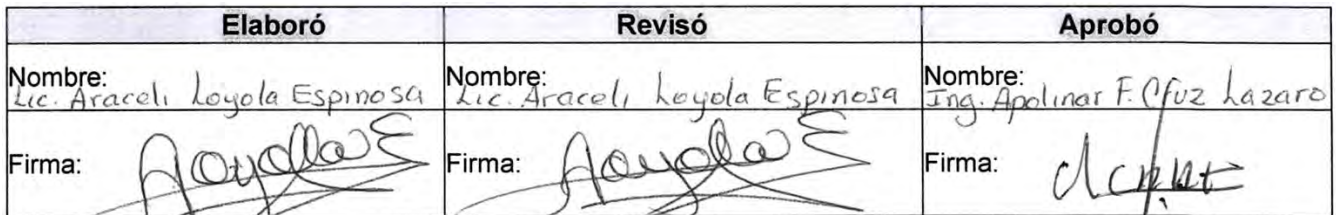 Elaboró Revisó Aprobó
Nombre: Nombre: Nombre:
Lic. Araceli Loyola Espinosa Lic. Araceli Loyola Espinosa Ing. Apolinar F. Cruz Lazaro
Firma: Firma: Firma: